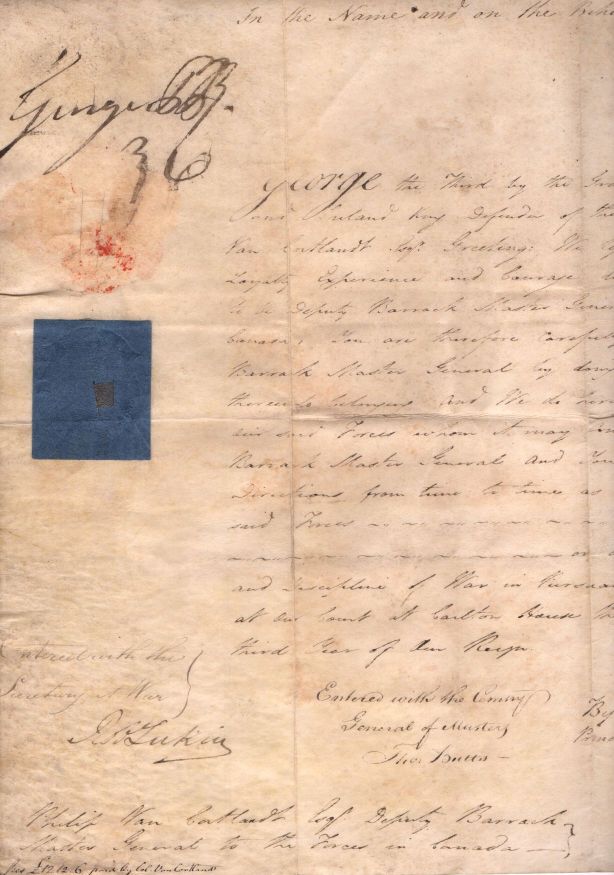 In the Name and on the Beha
George PR.
36
George the Third by the Gr
and Ireland King Defender of the
Van Cortlandt Esqr. Greeting: We
Loyalty Experience and Courage
to be Deputy Barrack Master Gener
Canada; You are therefore carefully
Barrack Master General by doing
thereunto belonging and We do here
our said Forces whom it may
Barrack Master General and You
Directions from time to time as
said Forces
or
and Discipline of War in Pursua
at Our Court at Carlton House the
third Year of Our Reign.
Entered with the
Secretary at War
Entered with the Comry
General of Musters
Thos. Butts
By
R. Lukin
Philip Van Cortlandt Esqr. Deputy Barrack
Master General to the Forces in Canada
£12.12.6 paid by Col. Van Cortlandt